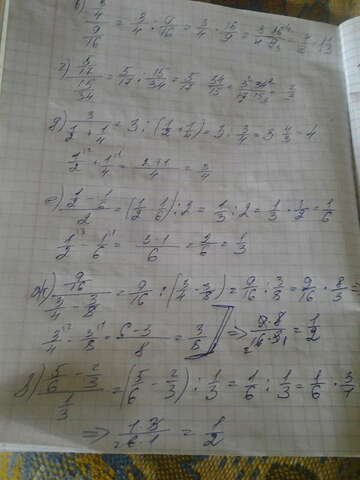 в) 3/4 / 9/16 = 3/4 : 9/16 = 3/4 · 16/9 =
г) 5/17 / 15/34 = 5/17 : 15/34 = 5/17 · 34/15 =
д) 3 / 1/2 + 1/4 = 3 : (1/2 + 1/4) = 3 : 3/4 = 3 · 4/3 = 4
1/2 + 1/4 = 2+1/4 = 3/4
е) 1/2 - 1/6 / 2 = (1/2 - 1/6) : 2 = 1/3 : 2 = 1/3 · 1/2 = 1/6
1/2 - 1/6 = 3-1/6 = 2/6 = 1/3
ж) 9/16 / 3/4 - 3/8 = 9/16 : (3/4 - 3/8) = 9/16 : 3/8 = 9/16 · 8/3 =
3/4 - 3/8 = 6-3/8 = 3/8 ] => 9·8/16·3 = 1/2
з) 5/6 - 2/3 / 1/3 = (5/6 - 2/3) : 1/3 = 1/6 : 1/3 = 1/6 · 3/1
=> 1·3/6·1 = 1/2